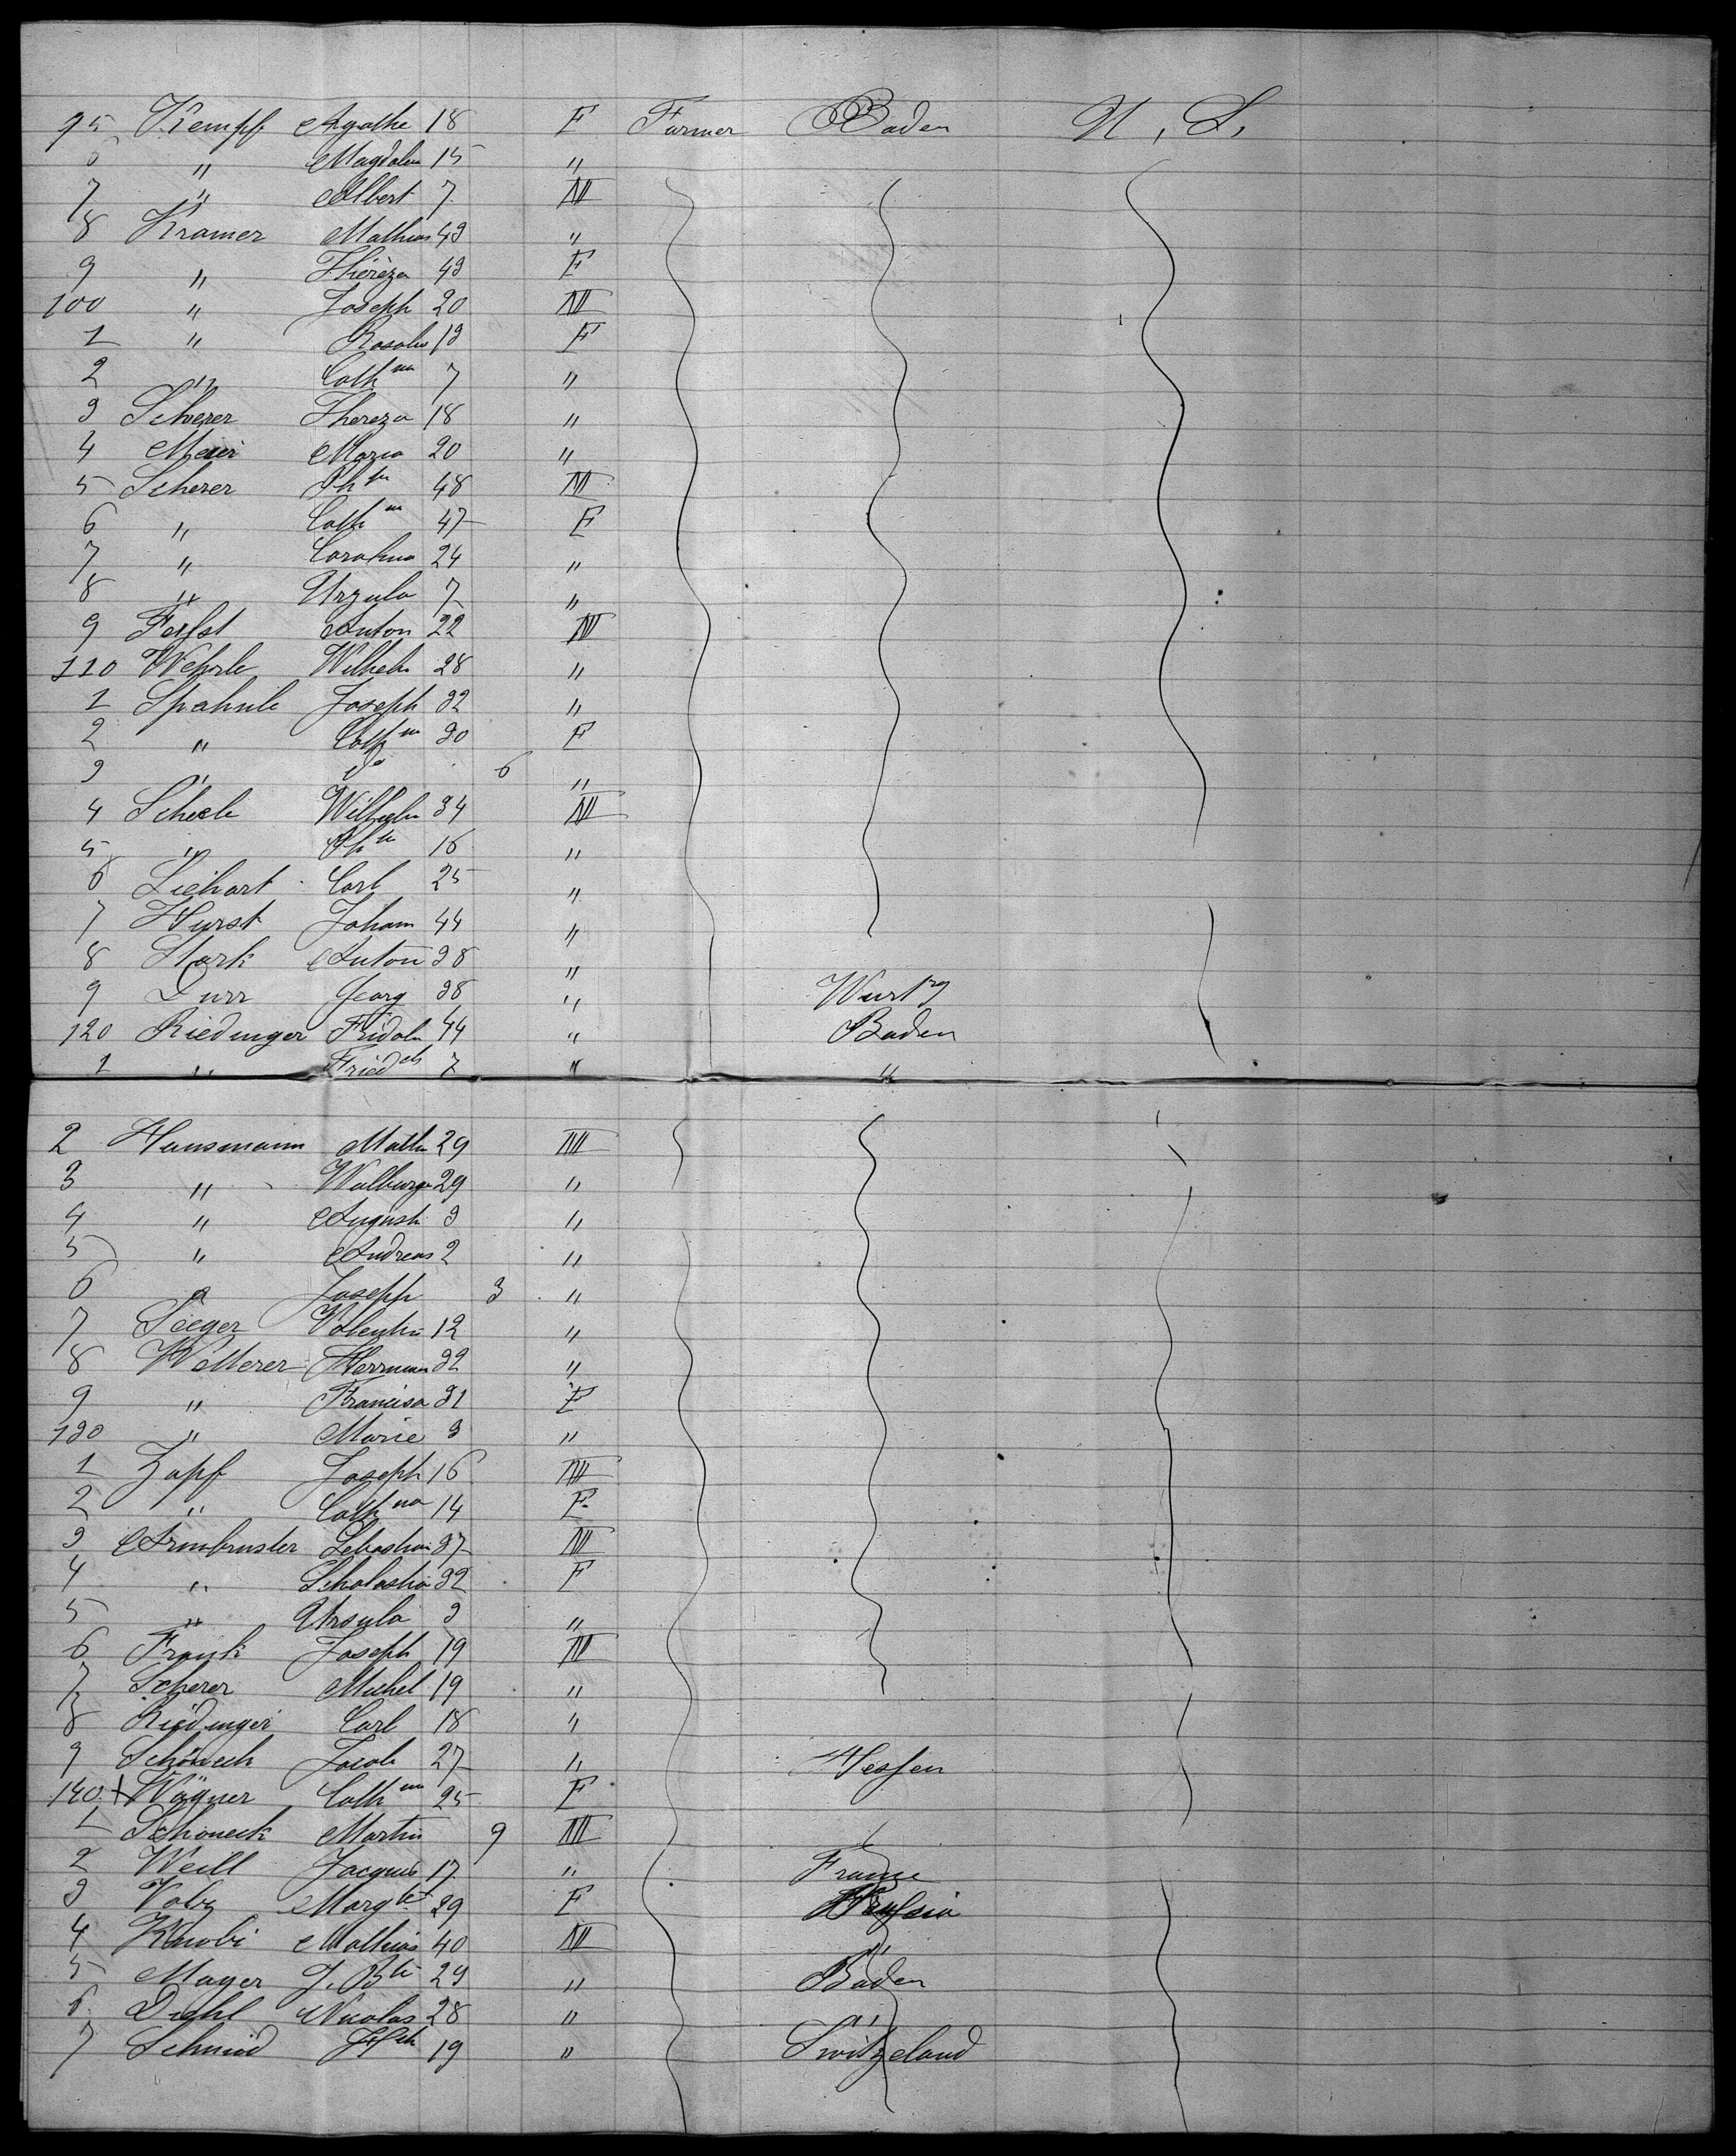 95 Kempf Agathe 18 F Farmer Baden U. S.
6 " Magdalena 15 "
7 " Albert 7 M
8 Kramer Mathias 43 "
9 " Théreza 43 F
100 " Joseph 20 M
1 " Rosalie 13 F
2 " Cath na 7 "
3 Scherer Thereza 18 "
4 Meier Maria 20 "
5 Scherer 48 M
6 " Cath na 47 F
7 " Carolina 24 "
8 " Urzula 7 "
9 Anton 22 M
110 Wehrle Wilhelm 28 "
1 Spahnle Joseph 32 "
2 " Cath na 30 F
3 " do 6 "
4 Scheele Wilhelm 34 M
5 " 16 "
6 Liehart Carl 25 "
7 Hurst Johann 44 "
8 Stark Anton 38 "
9 Durr Georg 38 " Wurtbg
120 Riedinger Fridolin 44 " Baden
1 " Fried ch 7 " "
2 Hunsmann Mathi 29 M
3 " Walburga 29 "
4 " August 3 "
5 " Andreas 2 "
6 " Joseph 3 "
7 Seeger Valentin 12 "
8 Wetterer Herrman 32 "
9 " Francisca 31 F
130 " Marie 3 "
1 Zapf Joseph 16 M
2 " Cath na 14 F
3 Armbruster Sebastian 37 M
4 " Scholastia 32 F
5 " Ursula 3 "
6 Frank Joseph 19 M
7 Scherer Michel 19 "
8 Riedinger Carl 18 "
9 Schöneck Jacob 27 " Hessen
140 + Wagner Cath na 25 F
1 Schoneck Martin 9 M
2 Weill Jacques 17 " France
3 Volz Marg te 29 F Prussia
4 Knobi Mathias 40 M "
5 Mayer J. Bte 29 " Baden
6 Diehl Nicolas 28 " "
7 Schmid 19 " Switzeland